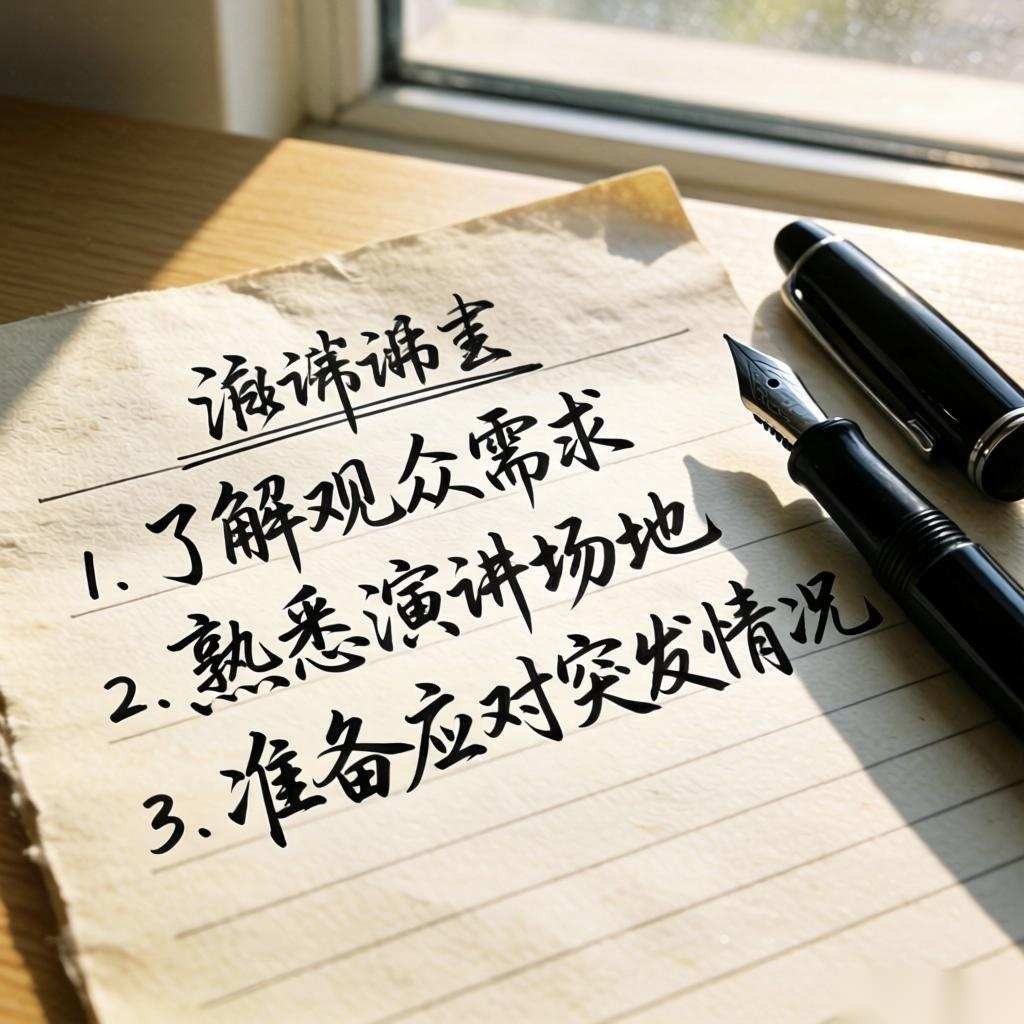 1. 了解观众需求
2. 熟悉演讲场地
3. 准备应对突发情况